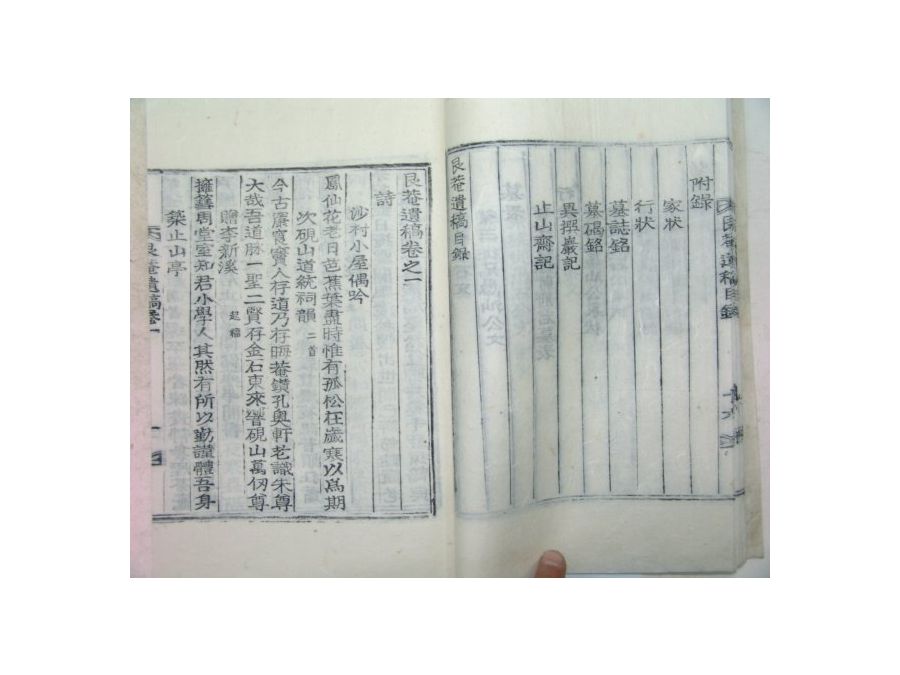 附錄
家狀
行狀
墓誌銘
墓碣銘
異撰巖記
止山齋記
艮菴遺稿目錄
艮菴遺稿卷之一
詩
沙村小屋偶吟
鳳仙花老日芭蕉葉盡時惟有孤松在歲寒以爲期
次硯山道統祠韻 二首
今古廉賓賓人存道乃存晦菴鑽孔奥軒老識朱尊
大哉吾道脉一聖二賢存金石東來響硯山萬仞尊
贈李新溪 起稿
擁舊馬堂室知君小學人其然有所以勤讃體吾身
築止山亭
艮菴遺稿卷一